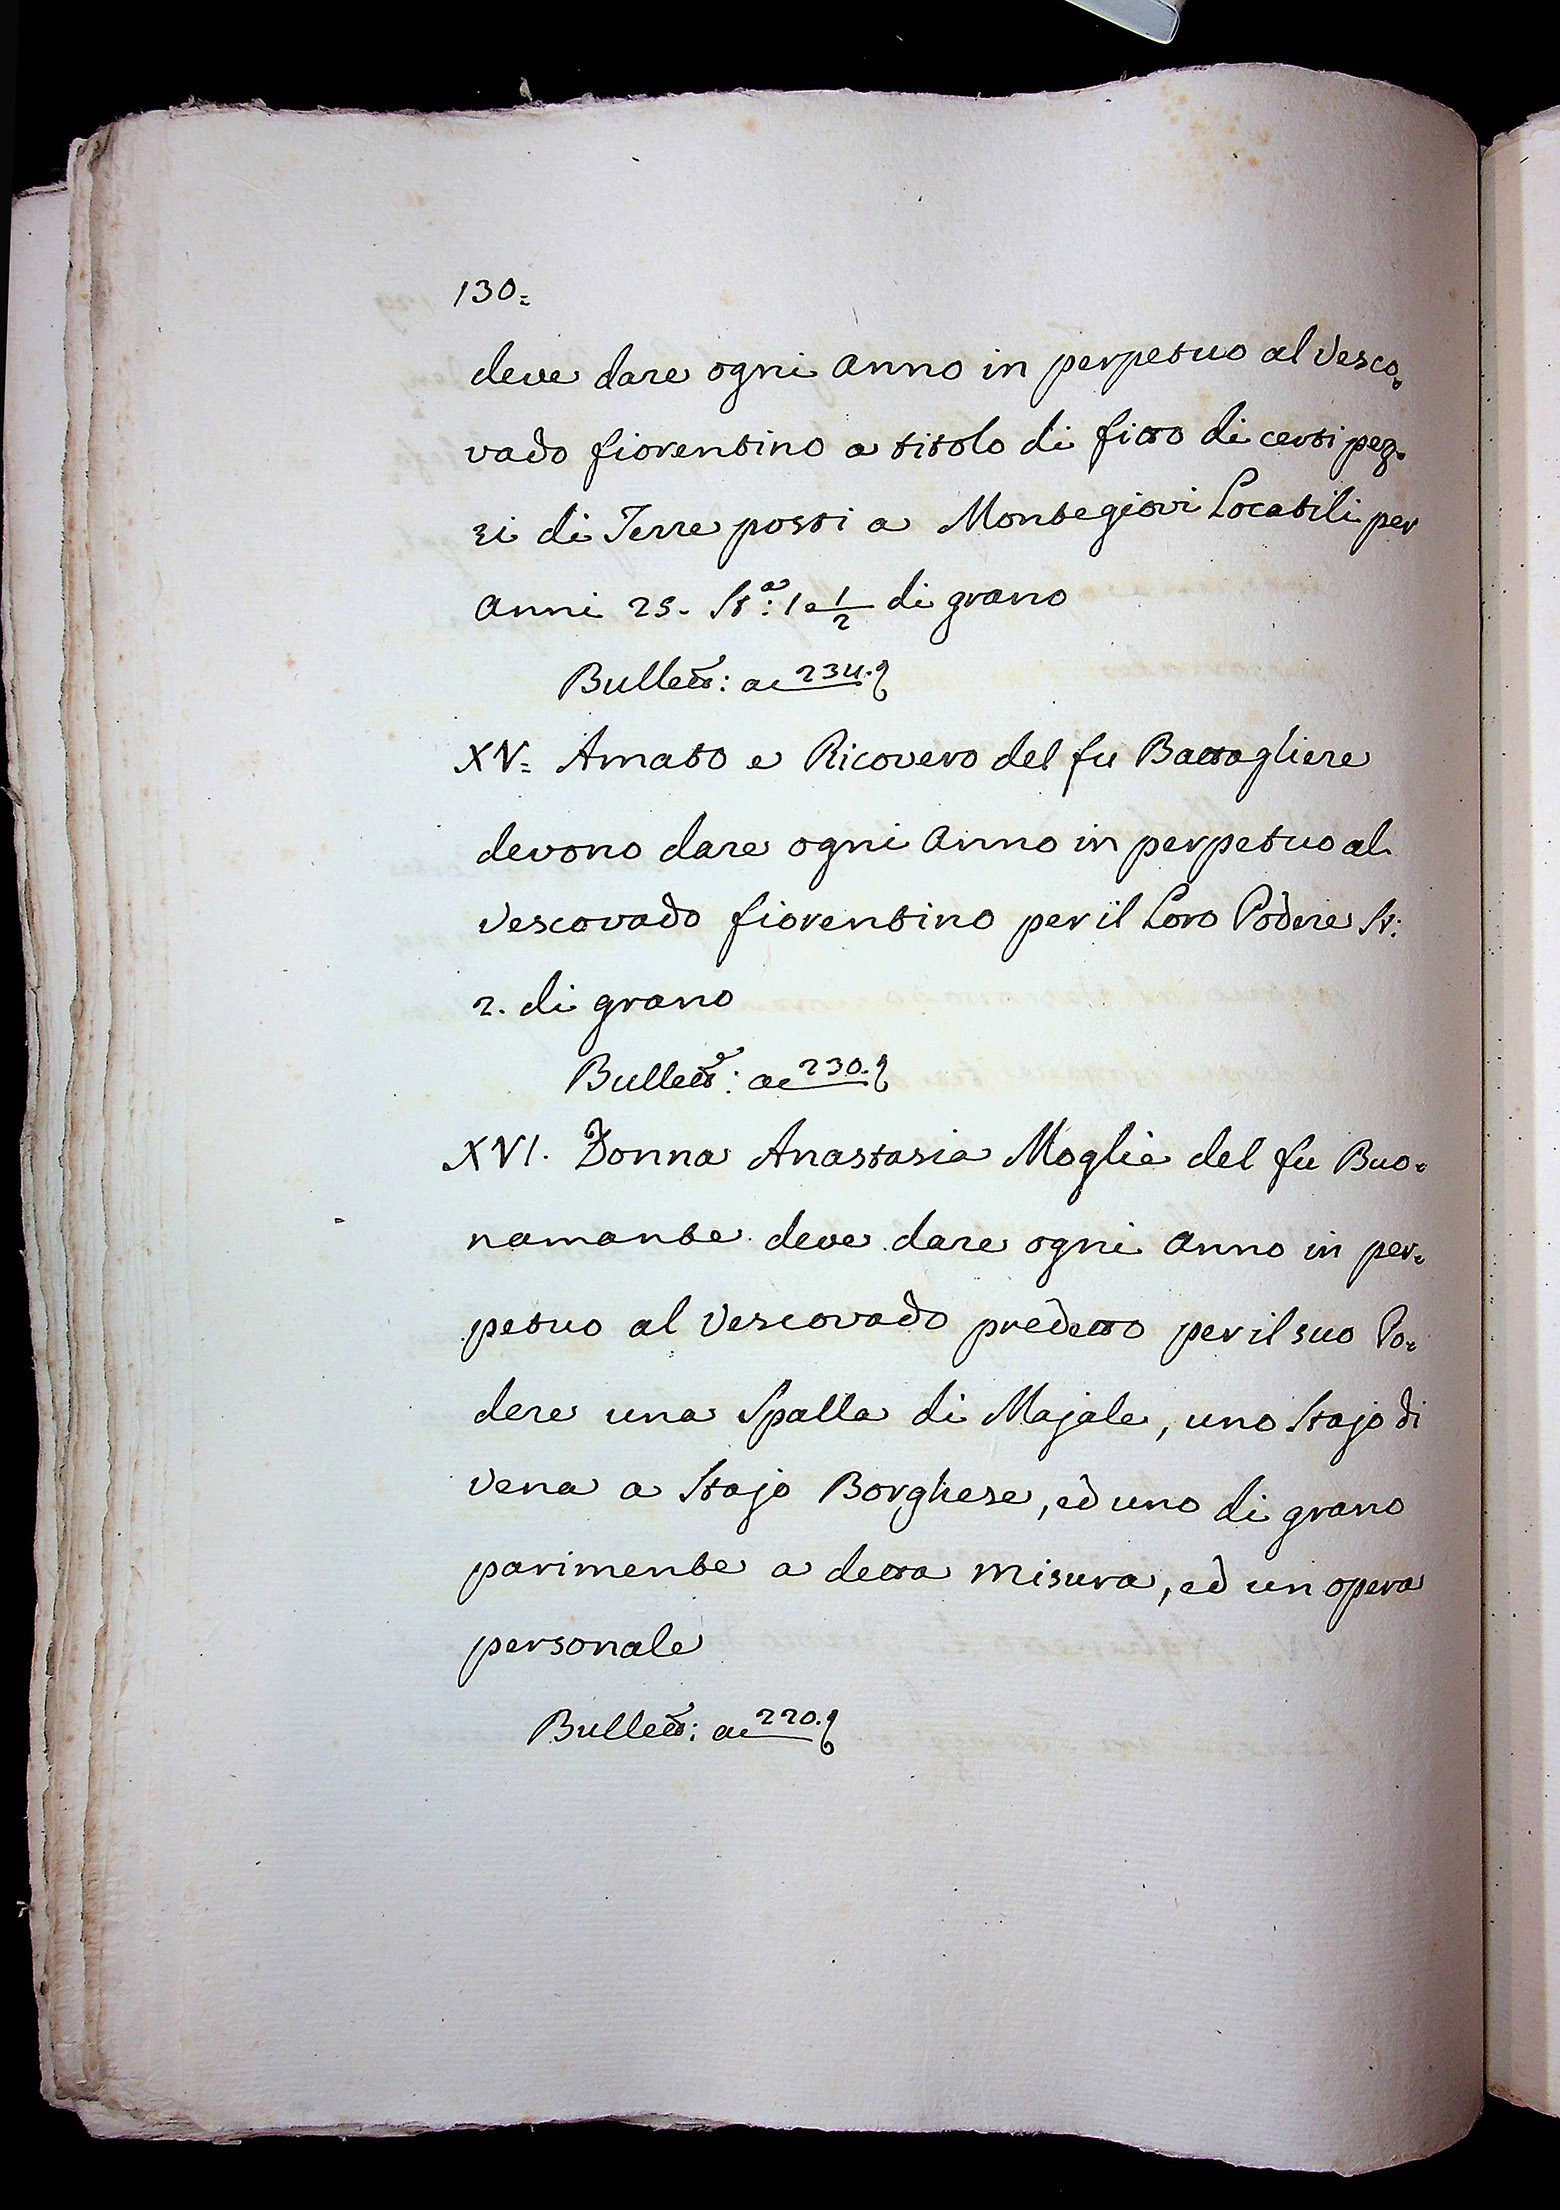 130=
deve dare ogni Anno in perpetuo al Vesco=
vado fiorentino a titolo di fitto di certi pez=
zi di Terre posti a Montegiovi Locatili per
Anni 25. St.ª: 1 e 1/2 di grano
Bullett.e: ac 234.
XV= Amato e Ricovero del fu Battagliere
devono dare ogni Anno in perpetuo al
Vescovado fiorentino per il Loro Podere St:
2. di grano
Bullett.e: ac 230.
XVI. Donna Anastasia Moglie del fu Buo=
namante deve dare ogni Anno in per=
petuo al Vescovado predetto per il suo Po=
dere una Spalla di Majale, uno Stajo di
vena a Stajo Borghese, ed uno di grano
parimente a detta misura, ed un opera
personale
Bullett.e: ac 220.